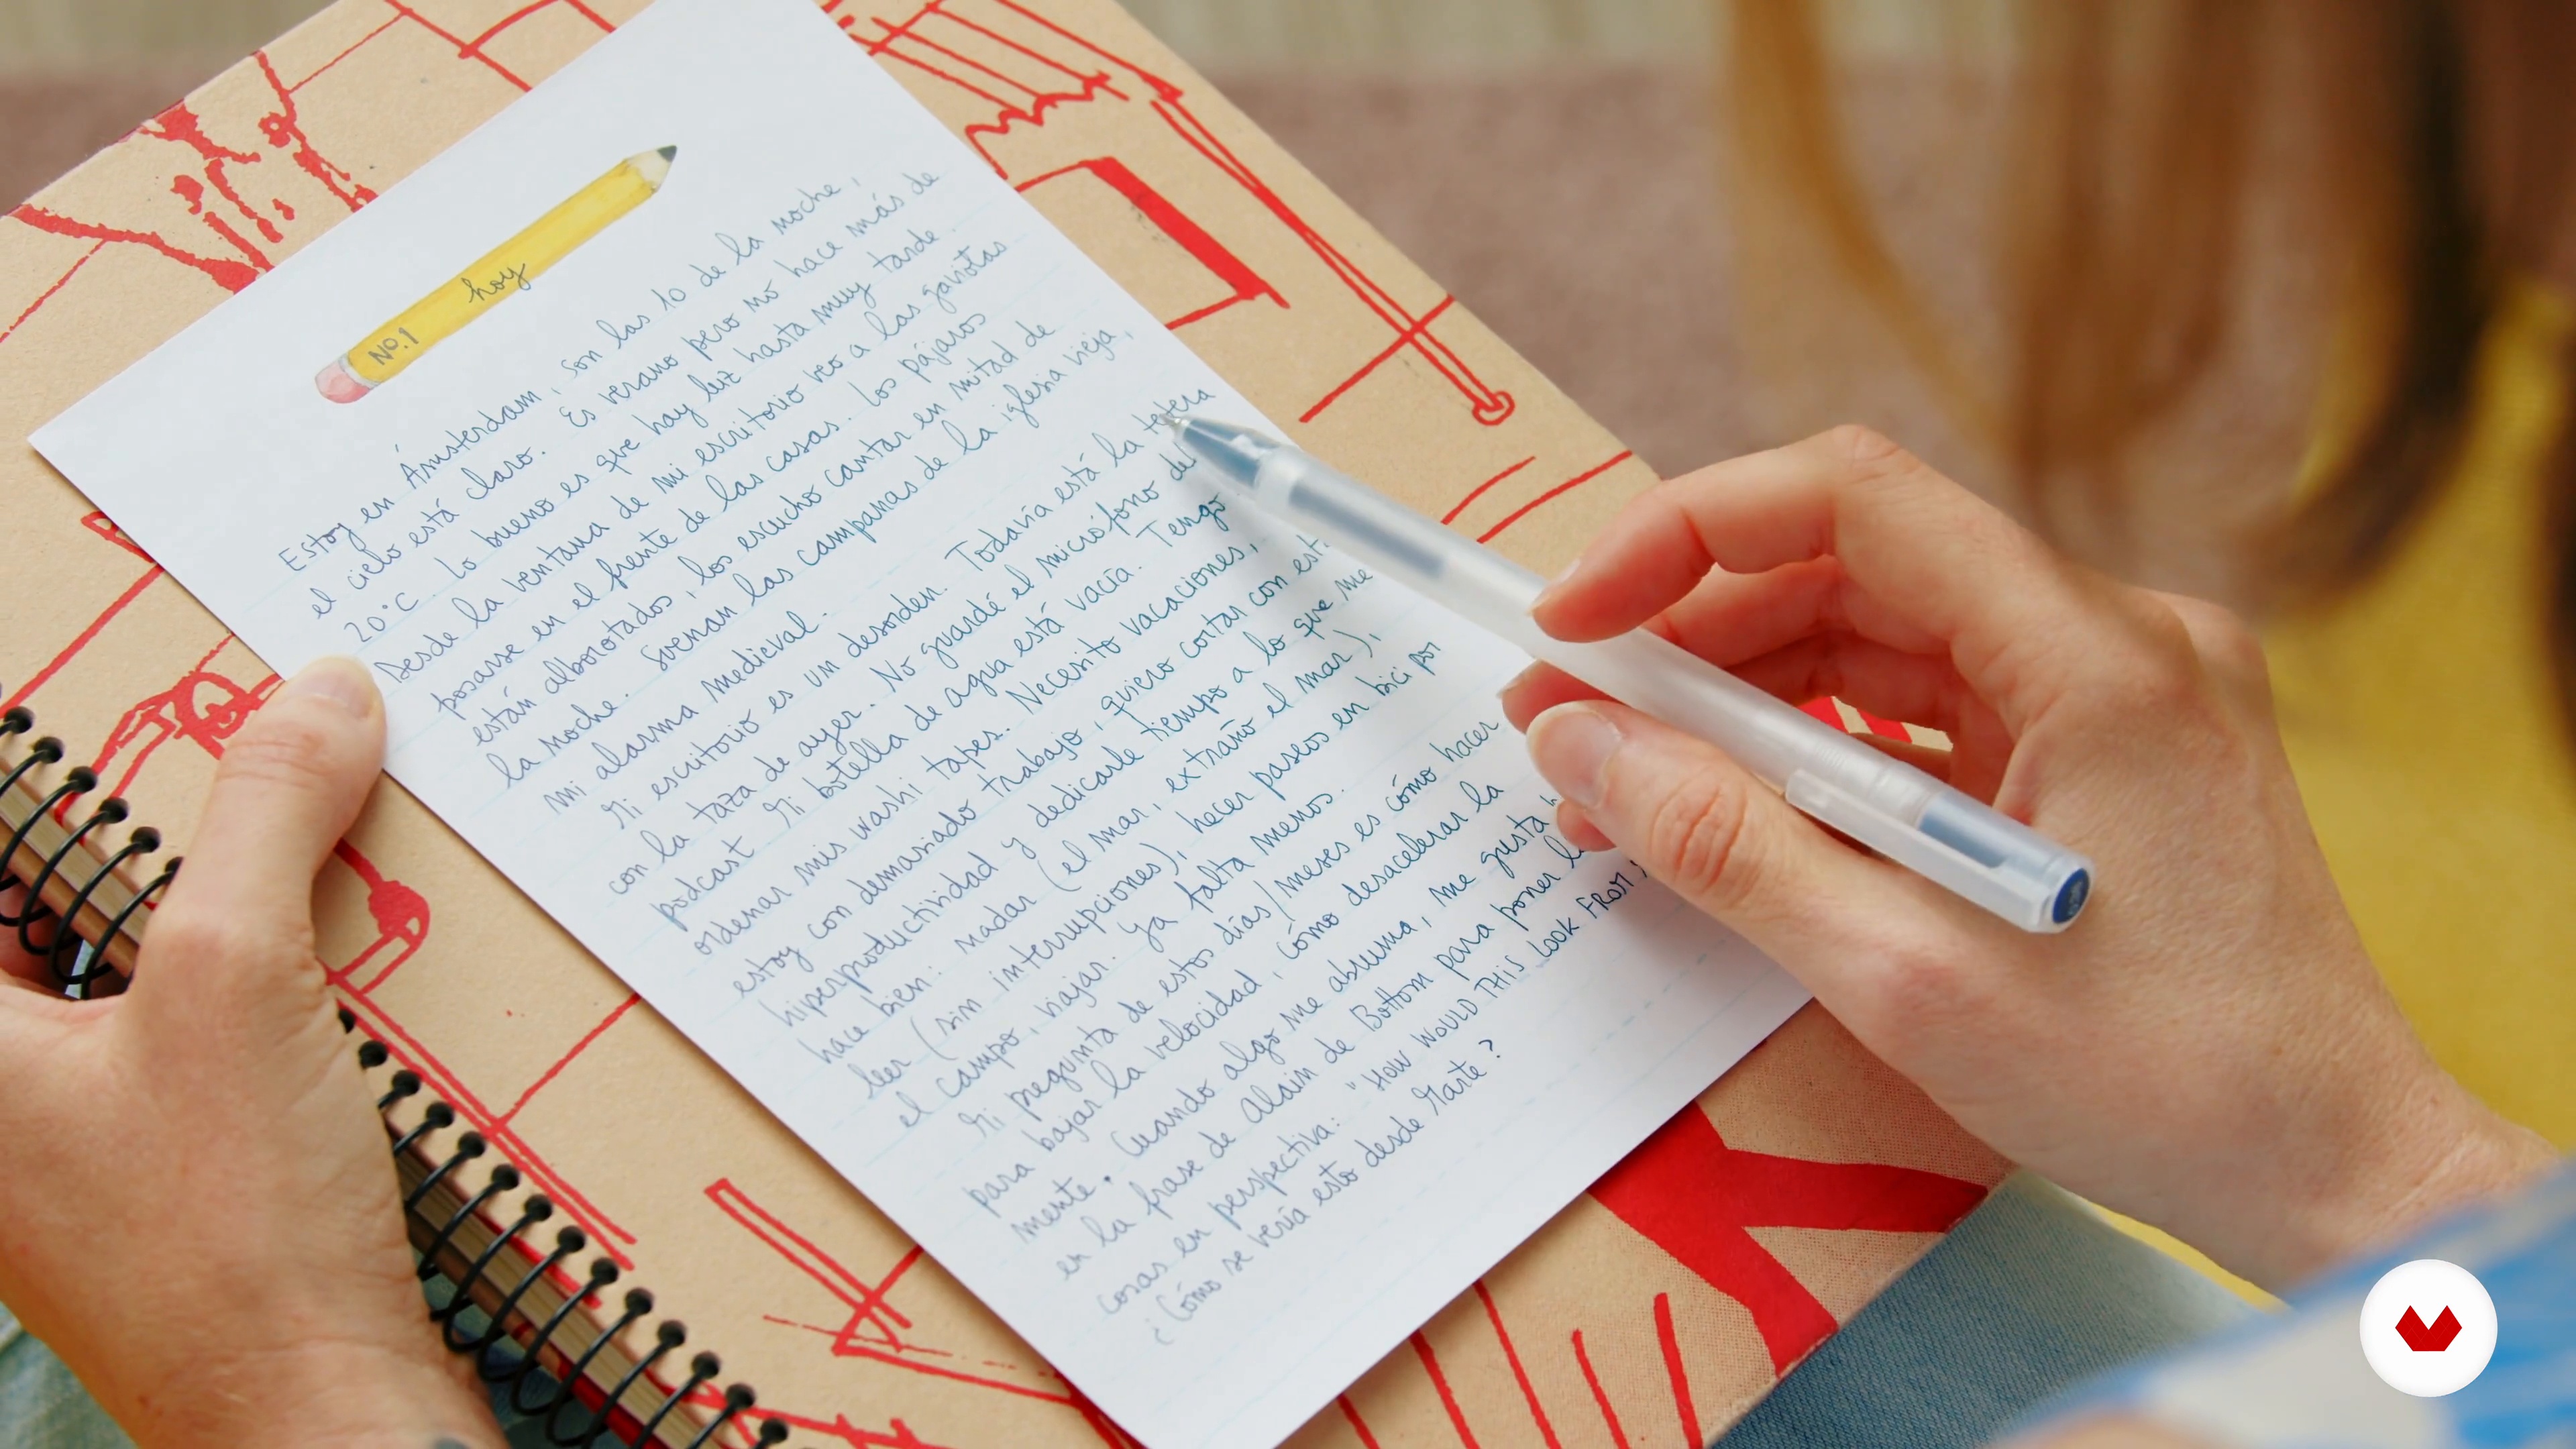 hoy
No.1
Estoy en Ámsterdam, son las 10 de la noche,
el cielo está claro. Es verano pero no hace más de
20°C. Lo bueno es que hay luz hasta muy tarde.
Desde la ventana de mi escritorio veo a las gaviotas
posarse en el frente de las casas. Los pájaros
están alborotados, los escucho cantar en mitad de
la noche. Suenan las campanas de la iglesia vieja,
mi alarma medieval.
Mi escritorio es un desorden. Todavía está la tetera
con la taza de ayer. No guardé el micrófono del
podcast. Mi botella de agua está vacía. Tengo
ordenar mis washi tapes. Necesito vacaciones,
estoy con demasiado trabajo, quiero cortar con
hiperproductividad y dedicarle tiempo a lo que me
hace bien: nadar (el mar, extraño el mar),
leer (sin interrupciones), hacer paseos en bici por
el campo, viajar. Ya falta menos.
Mi pregunta de estos días/meses es cómo hacer
para bajar la velocidad, cómo desacelerar la
mente. Cuando algo me abruma, me gusta
en la frase de Alain de Bottom para poner
cosas en perspectiva: "HOW WOULD THIS LOOK FROM
¿Cómo se vería esto desde Marte?